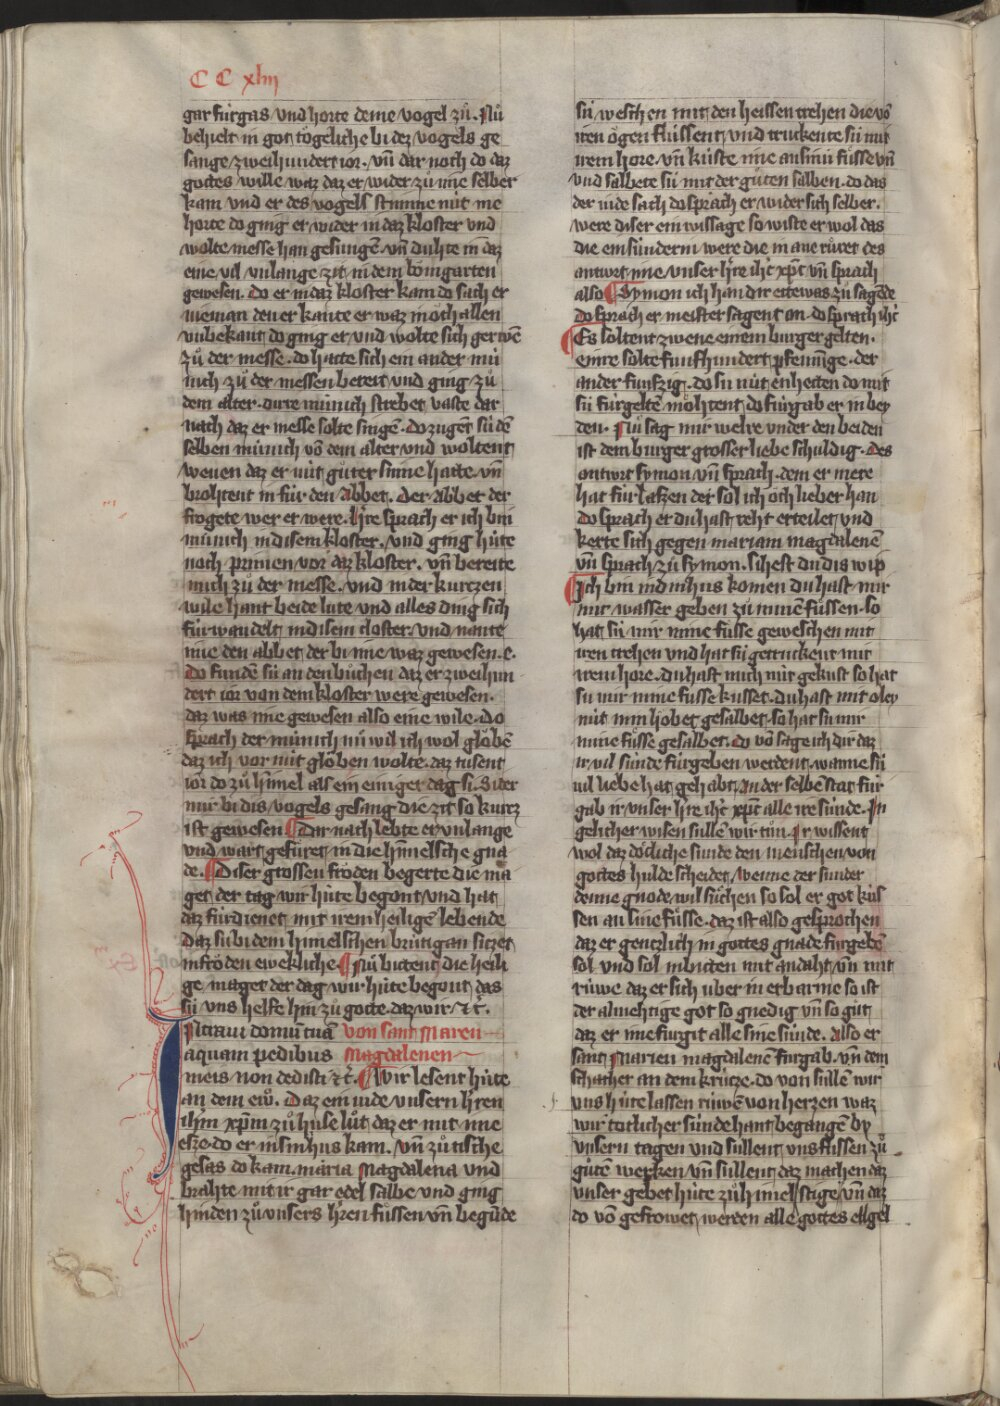 CC xliij
gar fúrgas vnd horte deme vogel zů. Nů
behielt in got togeliche bi dez vogels ge
sange zweihundert ior. vn̄ dar noch do daz
gottes wille waz daz er wider zů me selber
kam vnd er des vogels stimme nút me
horte do ging er wider in daz kloster vnd
wolte messe han gesungē. vn̄ duhte in daz
eine vil vnlange zit in dem bomgarten
gewesen. Do er in daz kloster kam do sach er
nieman den er kante er waz in och allen
vnbekant do ging er vnd wolte sich gerwē
zů der messe. do hatte sich ein ander mú
nich zů der messen bereit vnd ging zů
dem alter. dirre múnich strebet vaste dar
nach daz er messe solte singē. do zugēt sú dē
selben múnich vō dem alter vnd woltent
wenen daz er nút gůter sinne hatte. vn̄
brohtent in fúr den abbet. Der abbet der
frogete wer er were. h're sprach er ich bin
múnich in disem kloster. vnd ging húte
noch primen vor daz kloster. vn̄ bereite
mich zů der messe. vnd in der kurczen
wile hant beide lúte vnd alles ding sich
fúrwandelt in disem closter. vnd nante
me den abbet der bi me waz gewesen. e.
do fundē sú an den bůchen daz er zweihun
dert ior von dem kloster were gewesen.
daz was me gewesen also eine wile. do
sprach der múnich nú wil ich wol glōbē
daz ich vor nút glōben wolte. daz tusent
ior do zů himel als ein einiger dag si. Sider
mir bi dis vogels gesang die zit so kurcz
ist gewesen Dar nach lebte er vnlange
vnd wart gefúret in die himelsche gna
de. Diser grossen frōden begerte die ma
get der tag wir húte begont vnd hat
daz fúrdienet mit irem heiligē lebende
Daz sú bi dem himelschen brútigan sitzet
in frōden ewekliche. Nů bittent die heili
ge maget der dag wir húte begont das
sú vns helfe hin zů gotte. daz wir ⁊c̄.
INtraui domū tuā von sant Maren
aquam pedibus Magdalenen
meis non dedisti ⁊c̄. Wir lesent húte
an dem ewͦ. Daz ein iude vnsern h'ren
ihm xpm zů huse lůt daz er mit me
esze. do er in sin hus kam. vn̄ zů tische
gesas do kam. maria Magdalena vnd
brahte mit ir gar edel salbe vnd ging
hinden zů vnsers h'ren fůssen vn̄ begūde
sú weschen mit den heissen trehen die vō
iren ōgen flússent vnd truckente sú mit
irem hore. vn̄ kúste me an sinú fůsse vn̄
vnd salbete sú mit der gůten salben. do das
der iude sach do sprach er wider sich selber.
were diser ein wissage so wiste er wol das
die ein súnderin were die in ane růret des
antwrt me vnser h're ihc xpc vn̄ sprach
also Symon ich han dir ettewas zů sagēde
do sprach er meister sagent an. do sprach ihc
Es soltent zwene einem burger gelten.
eine solte funfhundert pfenninge. der
ander funfzig. do sú nút enhetten do mit
sú fúrgeltē mohtent do fúrgab er in bey
den. Nů sag mir welre vnder den beiden
ist dem burger grosser liebe schuldig. des
antwrt symon vn̄ sprach. dem er mere
hat fúrlaszen der sol ich och lieber han
do sprach er du hast reht erteilet vnd
kerte sich gegen mariam magdalenē
vn̄ sprach zů symon. sihest du dis wip
Ich bin in din hus komen du hast mir
nit wasser geben zů minē fússen. so
hat sú mir mine fússe geweschen mit
iren trehen vnd hat sú getruckent mit
irem hore. Du hast mich nút gekust so hat
sú mir mine fusse kusset. du hast mit oley
nút min hobet gesalbet so hat sú mir
mine fússe gesalbet. do vō sage ich dir daz
ir vil súnde fúrgeben werdent. wanne sú
vil liebe hat gehabt. an der selbē stat fúr
gab ir vnser h're ihc xpc alle ire súnde. In
gelicher wisen súllē wir tůn. Ir wissent
wol daz dōtliche súnde den menschen von
gottes hulde scheidet. wenne der súnder
denne gnode wil sůchen so sol er got kús
sen an sine fússe. daz ist also gesprochen
daz er gentzlich in gottes gnade fúrgebē
sol vnd sol in bitten mit andaht vn̄ mit
rúwe daz er sich vber in erbarme so ist
der almehtige got so gnedig vn̄ so gůt
daz er me furgit alle sine súnde. also er
sant Marien magdalenē furgab. vn̄ dem
schacher an dem krútze. do von súllē wir
vns húte lassen rúwē von herzen waz
wir totlicher súnde hant begangē by
vnsern tagen vnd súllent vns flissen zů
gůtē werken vn̄ súllent daz machen daz
vnser gebet húte zů himel stige vn̄ daz
do vō gefrowet werden alle gottes engel